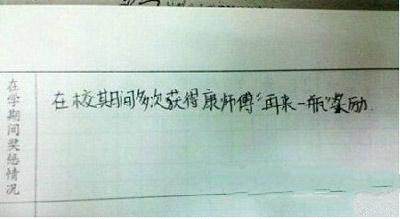 在学期间奖惩情况
在校其期间多次获得康师傅“再来一瓶”奖励.